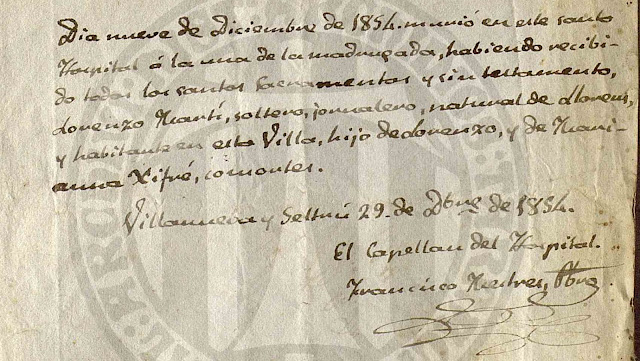 Dia nueve de Diciembre de 1854. murió en este santo
Hospital á la una de la madrugada, habiendo recibi-
do todos los santos Sacramentos y sin testamento,
Lorenzo Martí, soltero, jornalero, natural de Llorens,
y habitante en esta Villa, hijo de Lorenzo, y de Mari-
anna Xifré, consortes.
Villanueva y Geltrú 29 de Dbre de 1854.
El Capellan del Hospital.
Francisco Mestres, Pbro